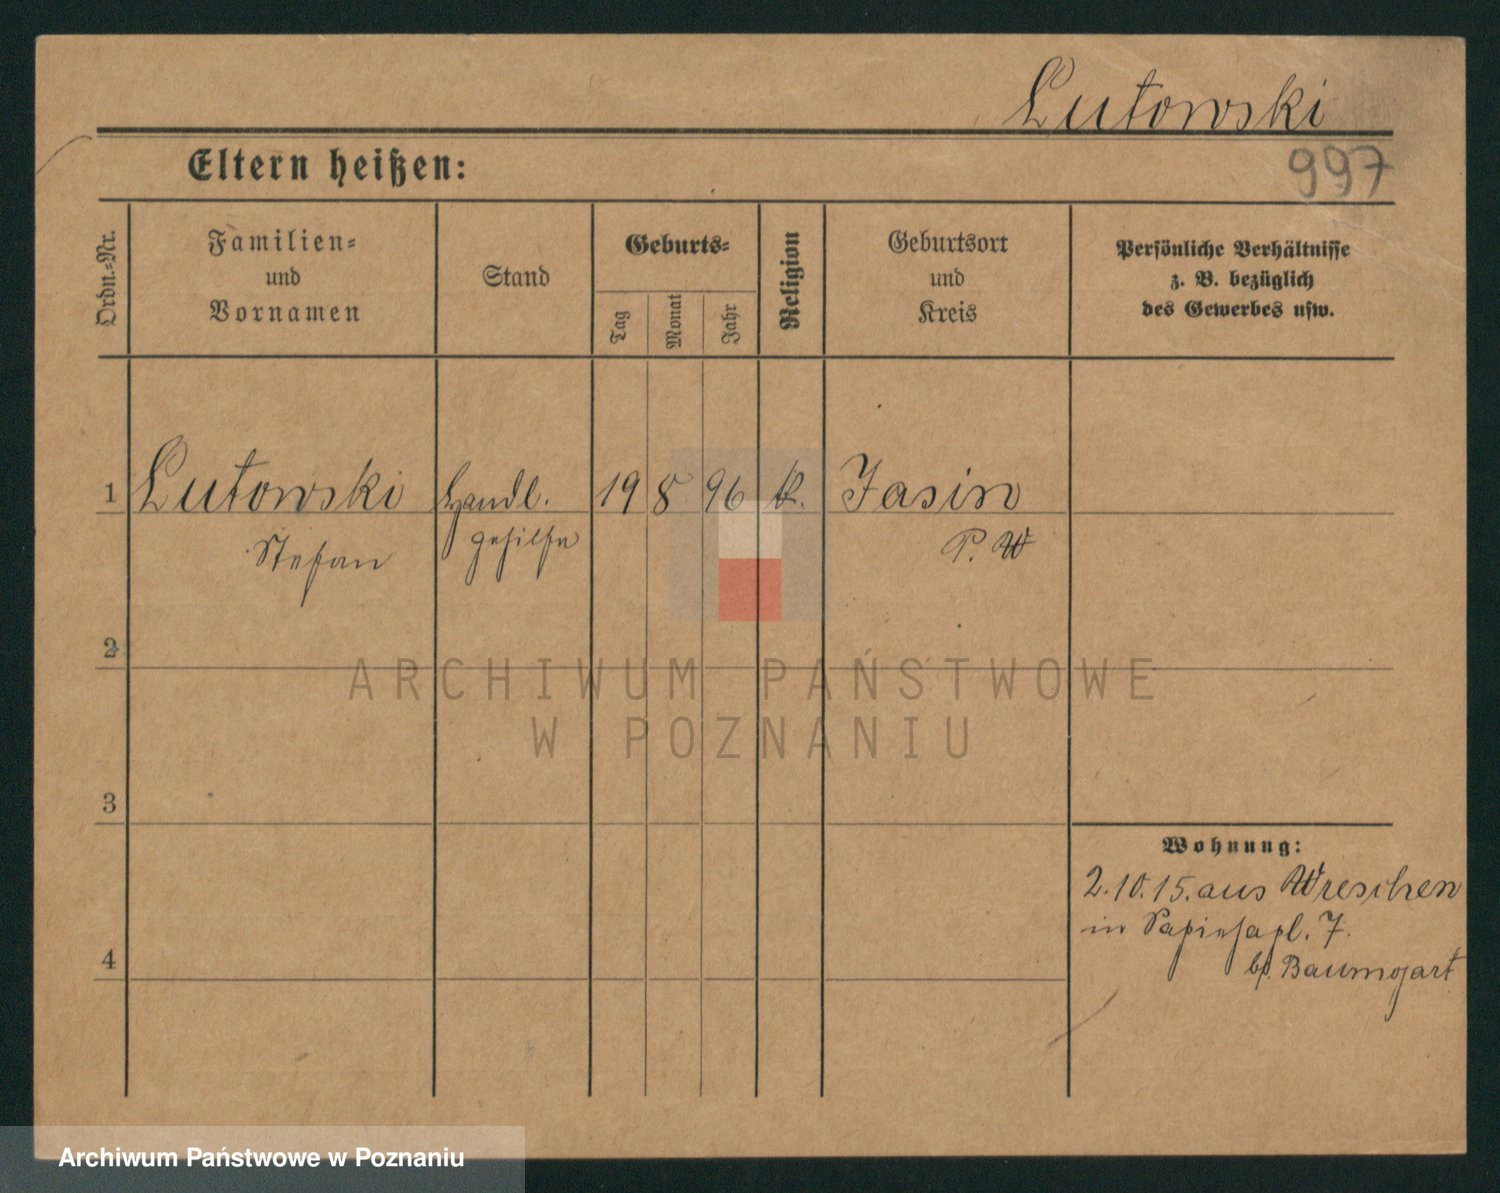 Lutowski
997
Eltern heißen:
Ordn.-Nr.
Familien-
und
Vornamen
Stand
Geburts-
Tag
Monat
Jahr
Religion
Geburtsort
und
Kreis
Persönliche Verhältnisse
z. B. bezüglich
des Gewerbes usw.
1 Lutowski Handl. 19 8 96 k. Jasin
Stefan gehilfe P. W
2
ARCHIWUM PAŃSTWOWE
W POZNANIU
3
Wohnung:
2.10.15. aus Wreschen
in Sapiehapl. 7.
4
b/. Baumgart
Archiwum Państwowe w Poznaniu